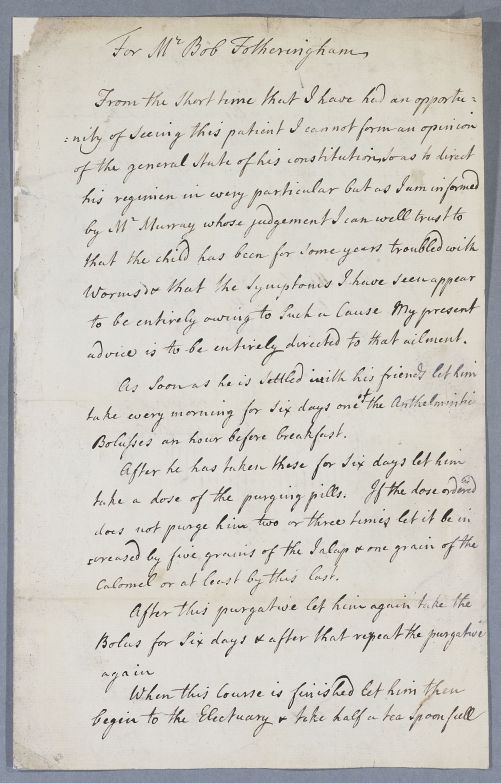 For Mr Bob Fotheringham
From the Short time that I have had an opportu=
=nity of Seeing this patient I cannot form an opinion
of the general State of his constitution so as to direct
his regimen in every particular but as I am informed
by Mr Murray whose judgement I can well trust to
that the child has been for Some years troubled with
Worms & that the Symptoms I have Seen appear
to be entirely owing to Such a Cause My present
advice is to be entirely directed to that ailment.
As Soon as he is Settled with his friends let him
take every morning for Six days one of the Anthelmintic
Bolusses an hour before breakfast.
After he has taken these for Six days let him
take a dose of the purging pills. If the dose ordered
does not purge him two or three times let it be in
creased by five grains of the Jalap & one grain of the
Calomel or at least by this last.
After this purgative let him again take the
Bolus for Six days & after that repeat the purgative
again
When this Course is finished let him then
begin to the Electuary & take half a tea Spoonfull